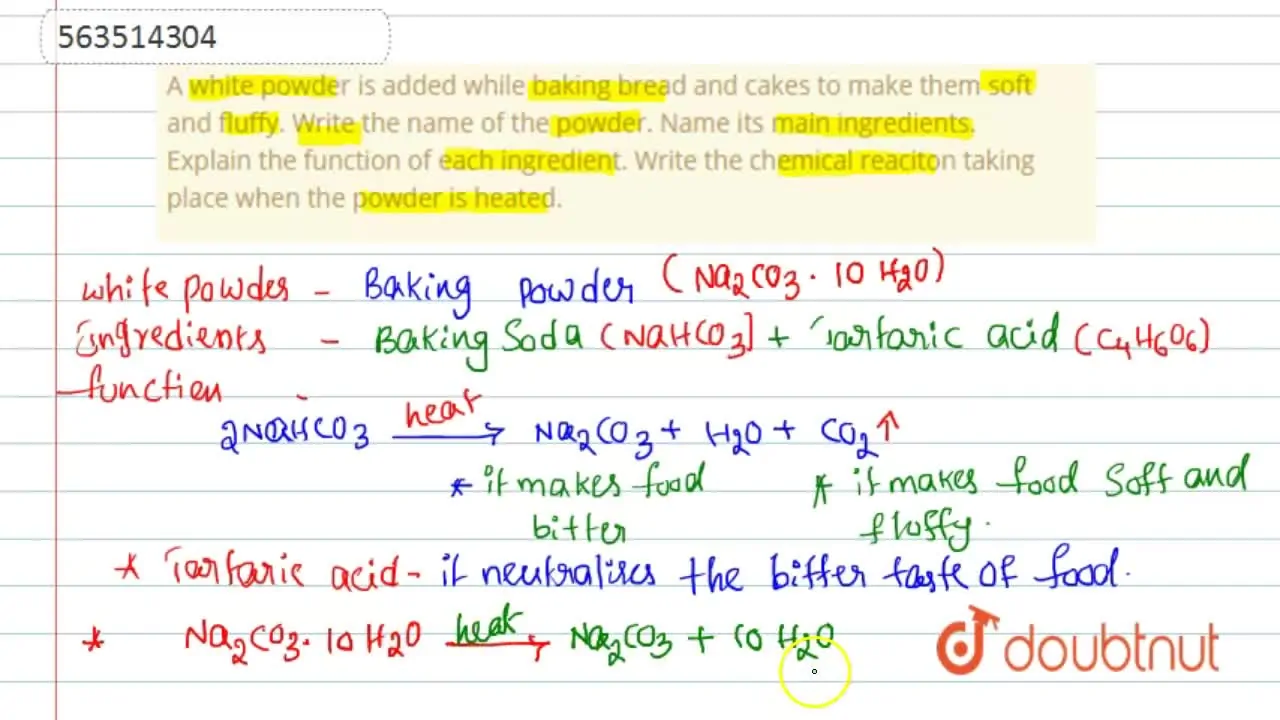 563514304
A white powder is added while baking bread and cakes to make them soft
and fluffy. Write the name of the powder. Name its main ingredients.
Explain the function of each ingredient. Write the chemical reaciton taking
place when the powder is heated.
white powder - Baking powder (Na2CO3 · 10 H2O)
ingredients - Baking Soda (NaHCO3] + Tartaric acid (C4H6O6)
function -
2NaHCO3 heat → Na2CO3 + H2O + CO2 ↑
* it makes food * it makes food soft and
bitter fluffy.
* Tartaric acid - it neutralises the bitter taste of food.
* Na2CO3 · 10 H2O heat → Na2CO3 + 10 H2O
doubtnut